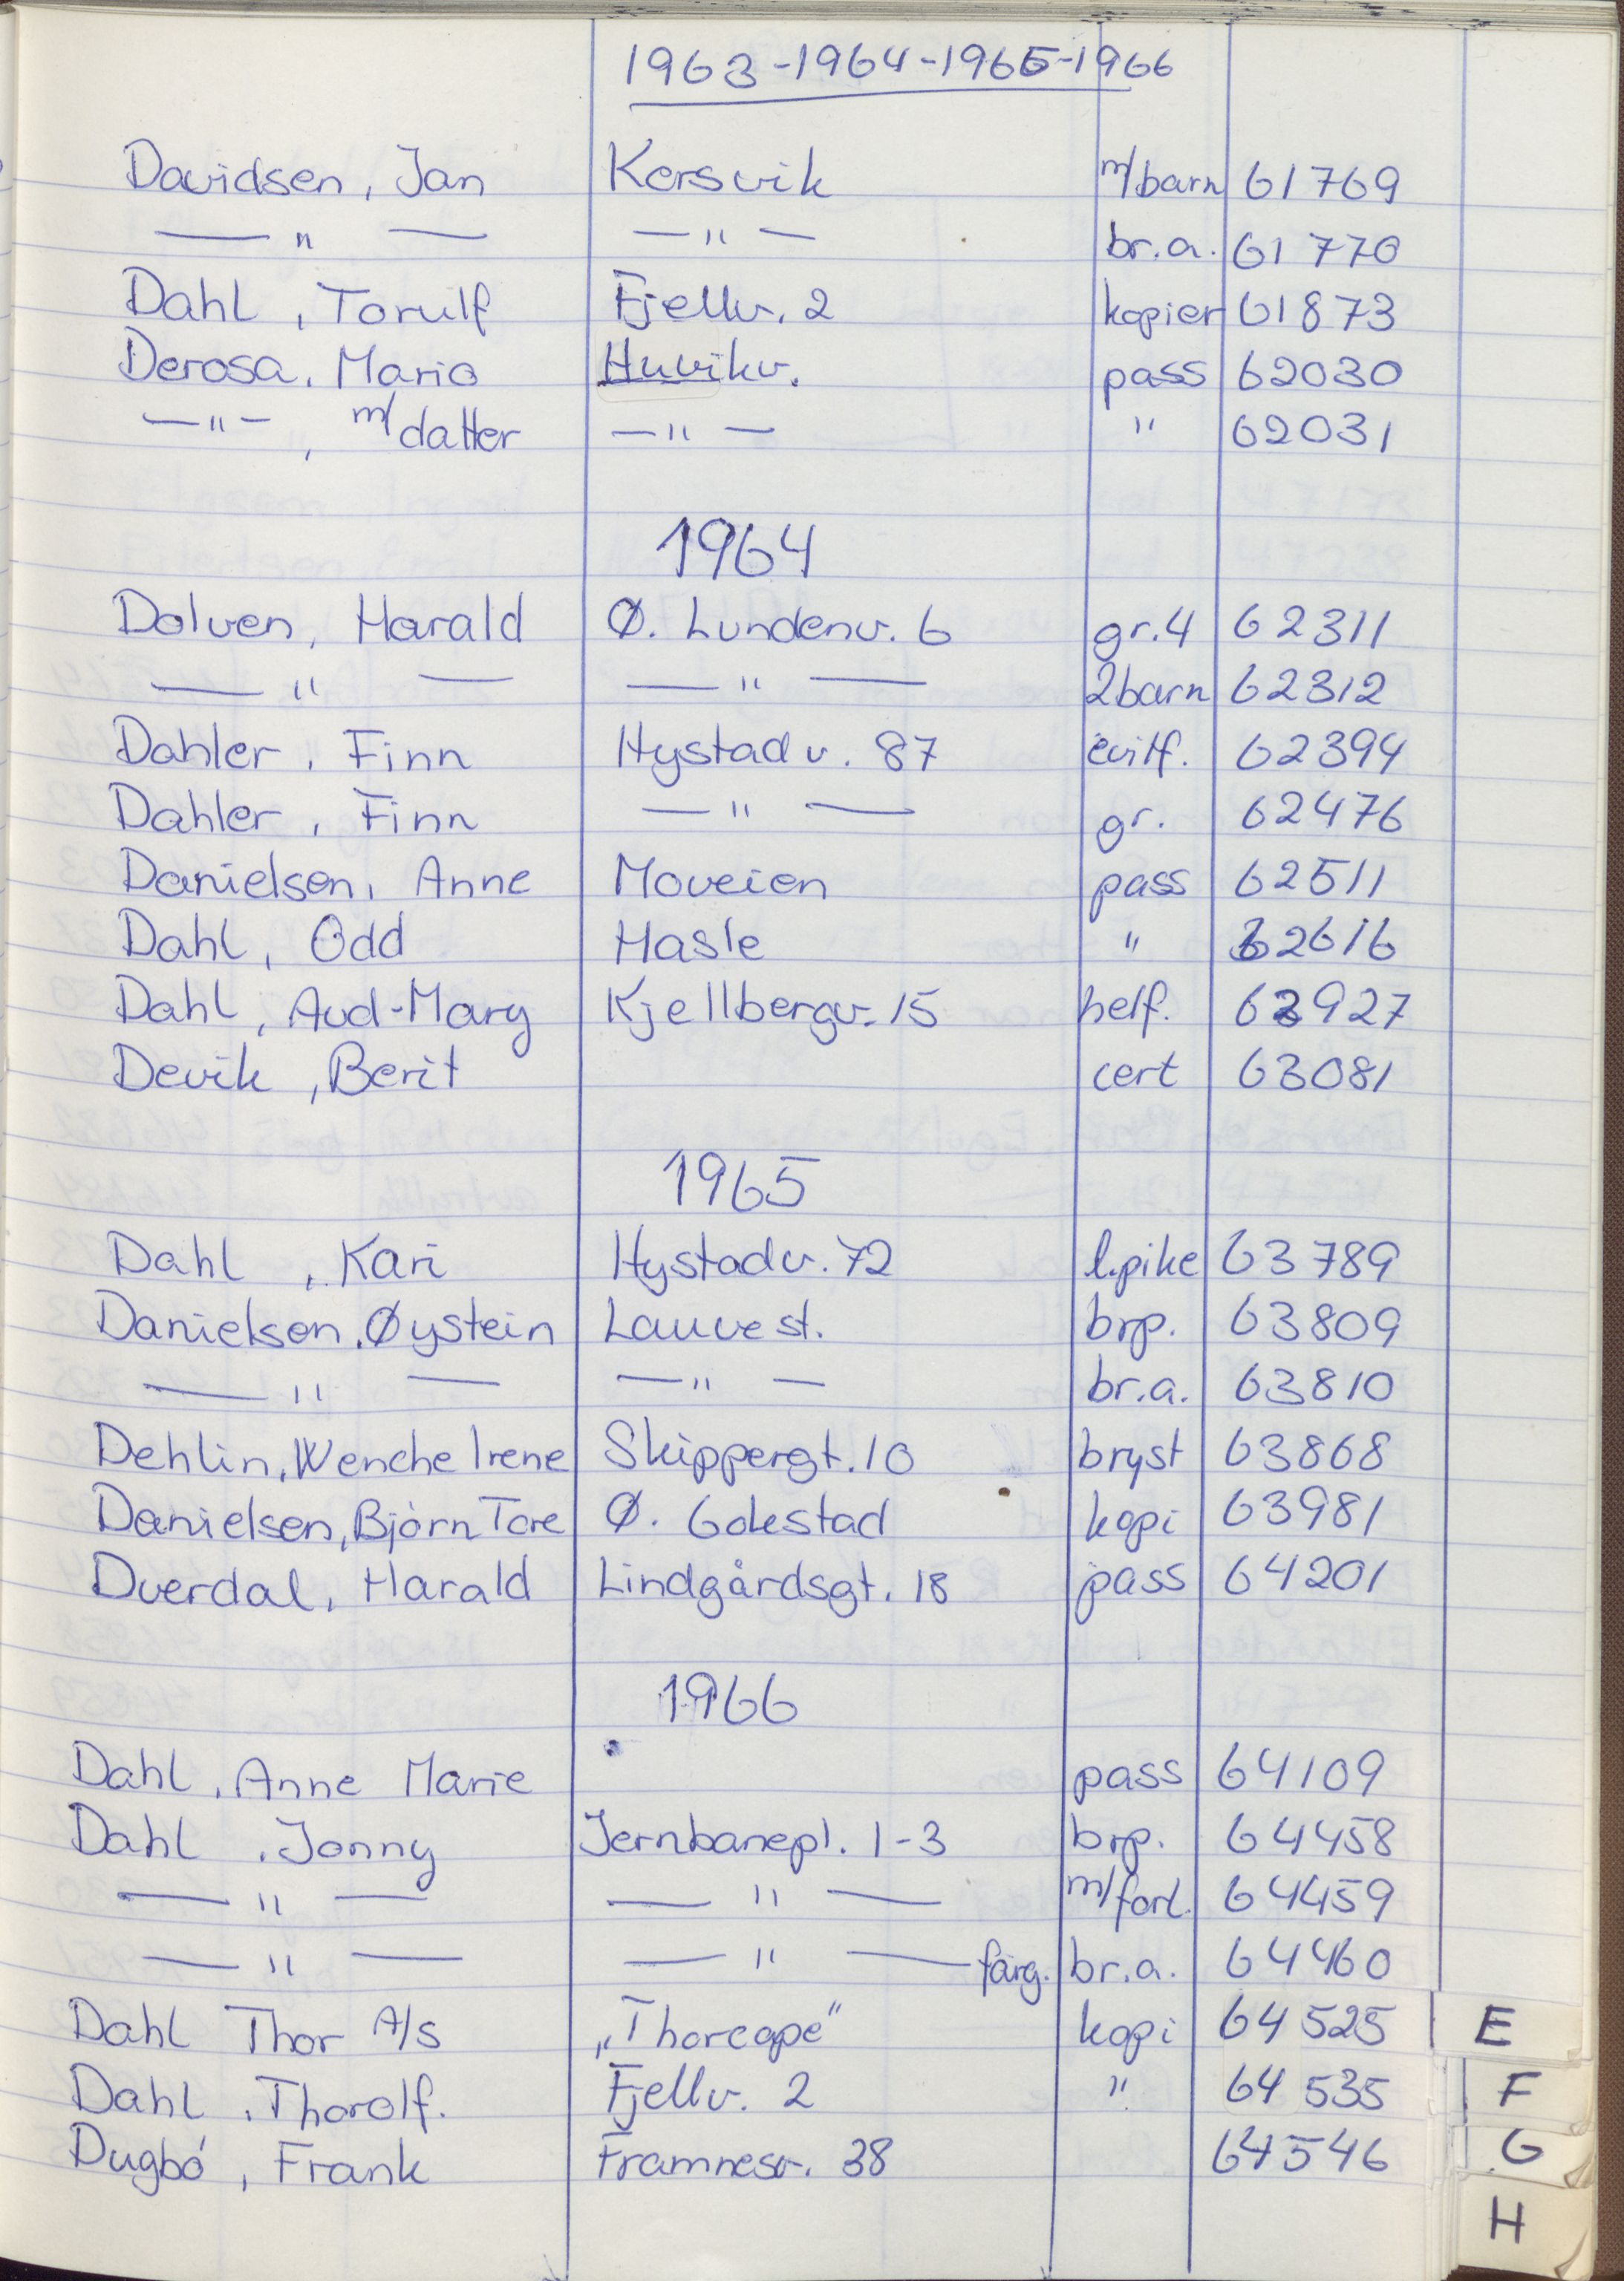 1963-1964-1965-1966
Davidsen, Jan Kersvik m/barn 61769
— " — — " — br.a. 61770
Dahl, Torulf Fjellv. 2 kopier 61873
Derosa, Mario Huvikv. pass 62030
— " — , m/datter — " — " 62031
1964
Dolven, Harald Ø. Lundenv. 6 gr.4 62311
— " — — " — 2barn 62312
Dahler, Finn Hystadv. 87 62394
Dahler, Finn — " — gr. 62476
Danielsen, Anne Moveien pass 62511
Dahl, Odd Hasle " 62616
Dahl, Aud-Mary Kjellbergv. 15 helf. 62927
Devik, Berit cert 63081
1965
Dahl, Kari Hystadv. 72 l.pike 63789
Danielsen, Øystein Lauve st. brp. 63809
— " — — " — br.a. 63810
Dehlin, Wenche Irene Skippergt. 10 bryst 63868
Danielsen, Bjørn Tore Ø. Gokstad kopi 63981
Dverdal, Harald Lindgårdsgt. 18 pass 64201
1966
Dahl, Anne Marie pass 64109
Dahl, Jonny Jernbanepl. 1-3 brp. 64458
— " — — " — m/forl. 64459
— " — — " — farg. br.a. 64460
Dahl Thor A/s „Thorcape" kopi 64525 E
Dahl, Thorolf. Fjellv. 2 " 64535 F
Dugbó, Frank Framnesv. 38 64546 G
H